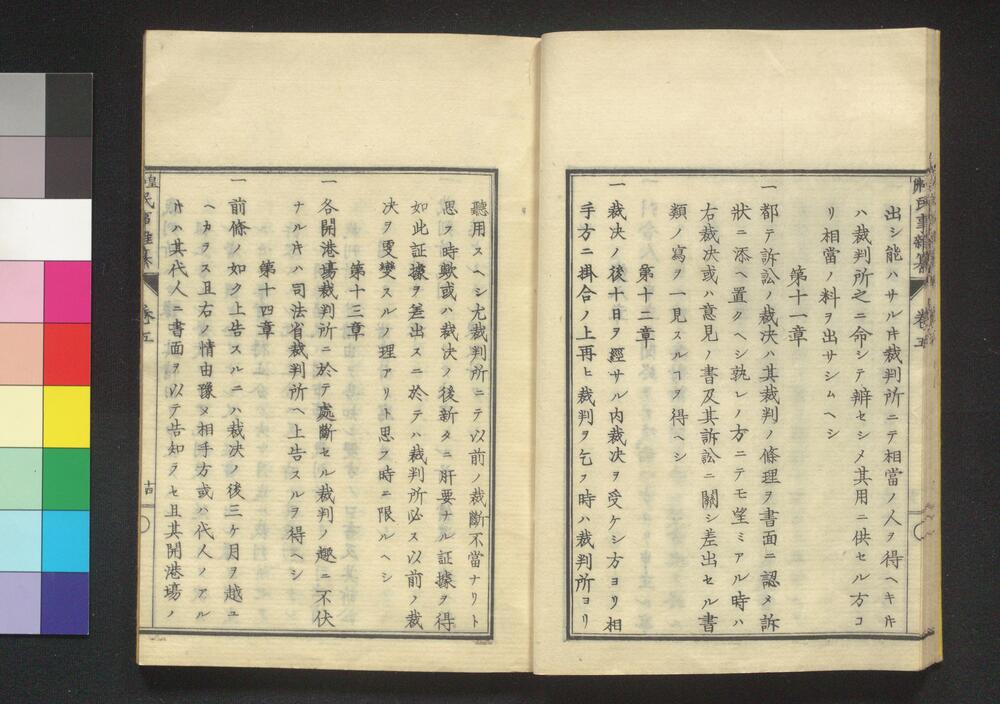 出シ能ハサル𪜈裁判所ニテ相當ノ人ヲ得ヘキ𪜈
ハ裁判所之ニ命シテ辨セシメ其用ニ供セル方ヨ
リ相當ノ料ヲ出サシムヘシ
第十一章
一都テ訴訟ノ裁決ハ其裁判ノ條理ヲ書面ニ認メ訴
狀ニ添ヘ置クヘシ孰レノ方ニテモ望ミアル時ハ
右裁決或ハ意見ノ書及其訴訟ニ關シ差出セル書
類ノ寫ヲ一見スルヿヲ得ヘシ
第十二章
一裁決ノ後十日ヲ經サル内裁決ヲ受ケシ方ヨリ相
手方ニ掛合ノ上再ヒ裁判ヲ乞フ時ハ裁判所ヨリ
聽用スヘシ尤裁判所ニテ以前ノ裁斷不當ナリト
思フ時歟或ハ裁決ノ後新タニ肝要ナル証據ヲ得
如此証據ヲ差出スニ於テハ裁判所必ス以前ノ裁
決ヲ變スルノ理アリト思フ時ニ限ルヘシ
第十三章
一各開港場裁判所ニ於テ處斷セル裁判ノ趣ニ不伏
ナル𪜈ハ司法省裁判所ヘ上告スルヲ得ヘシ
第十四章
一前條ノ如ク上告スルニハ裁決ノ後三ケ月ヲ越ユ
ヘカラス且右ノ情由豫メ相手方或ハ代人ノアル
𪜈ハ其代人ニ書面ヲ以テ告知ラセ且其開港場ノ
民事
卷五